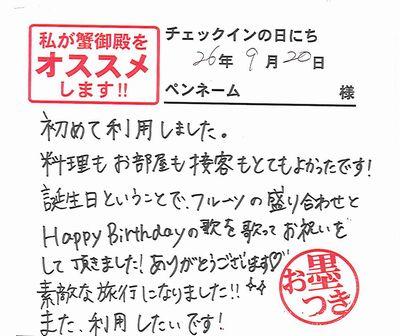 私が蟹御殿を
オススメ
します!!
チェックインの日にち
26年 9月 20日
ペンネーム 様
初めて利用しました。
料理もお部屋も接客もとてもよかったです!
誕生日ということで、フルーツの盛り合わせと
Happy Birthdayの歌を歌ってお祝いを
して頂きました!ありがとうございます♡
素敵な旅行になりました!!
また、利用したいです!
お墨つき